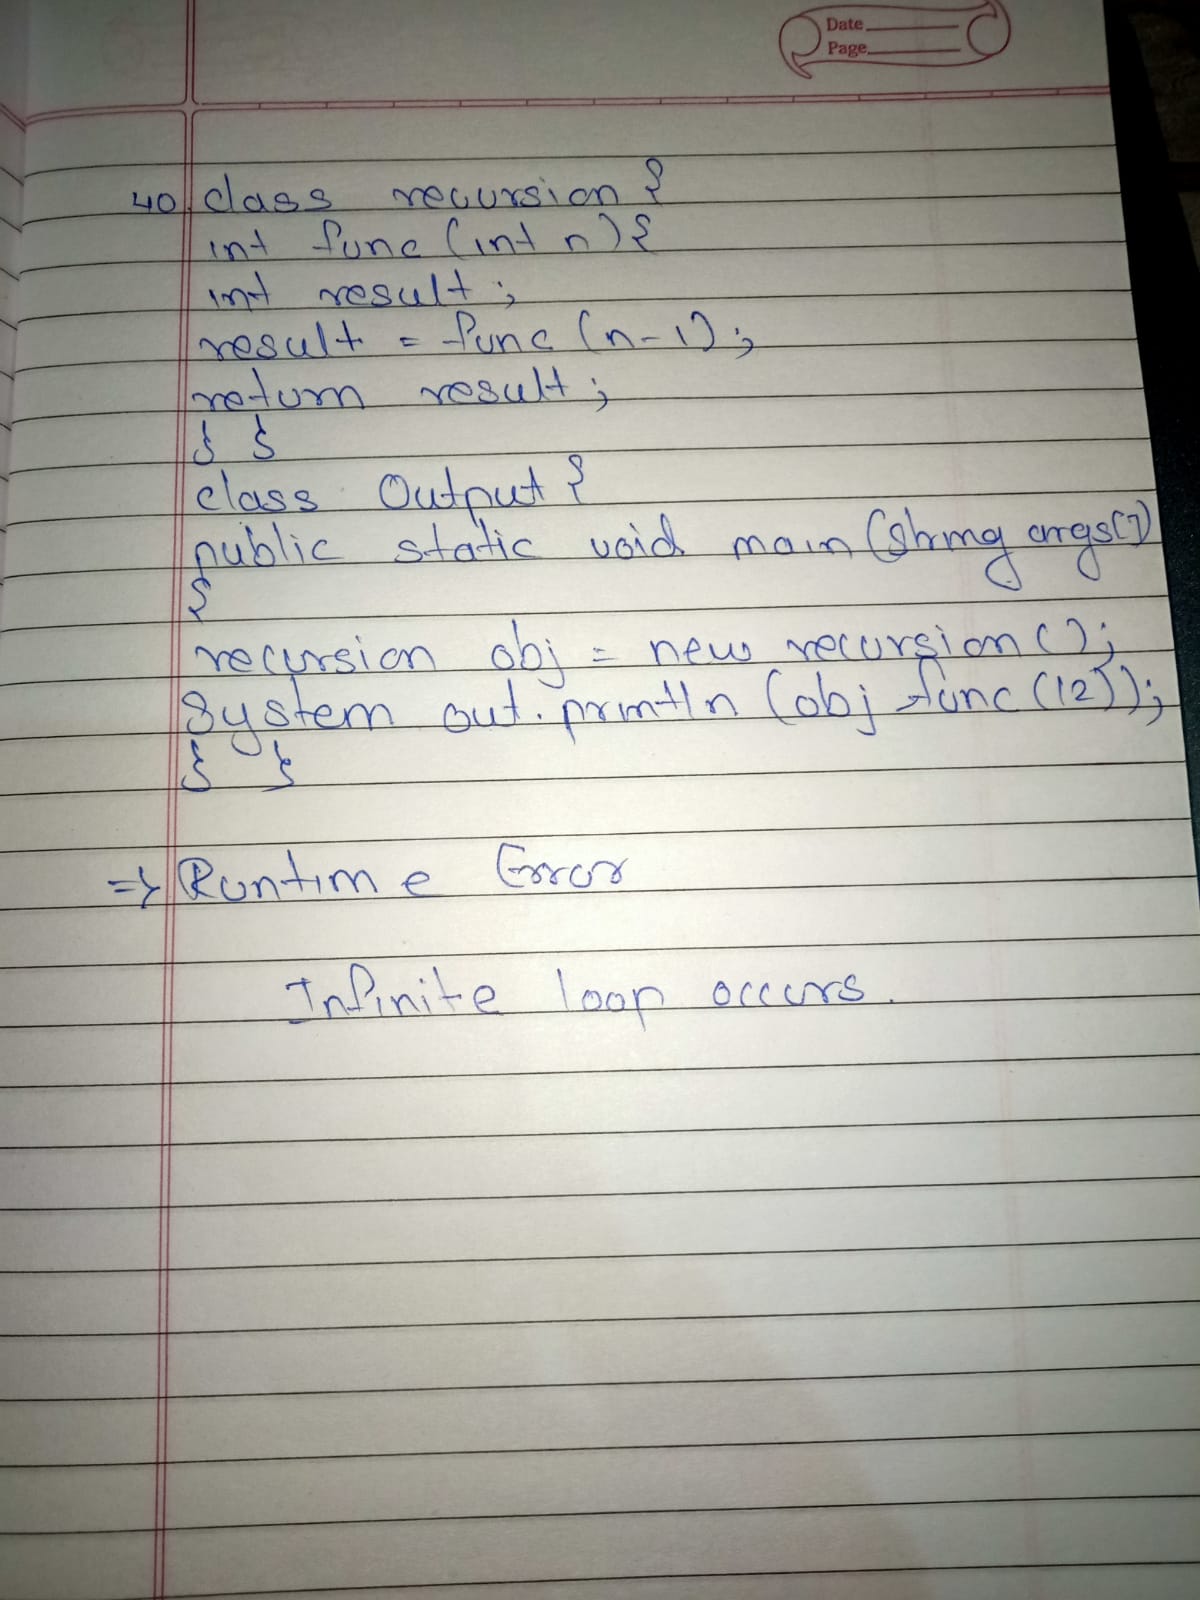 Date
Page
40. class recursion {
int func (int n) {
int result ;
result = func (n-1) ;
return result ;
} }
class Output {
public static void main (String args[])
{
recursion obj = new recursion () ;
System out. println (obj func (12)) ;
} }
=> Runtime Error
Infinite loop occurs.